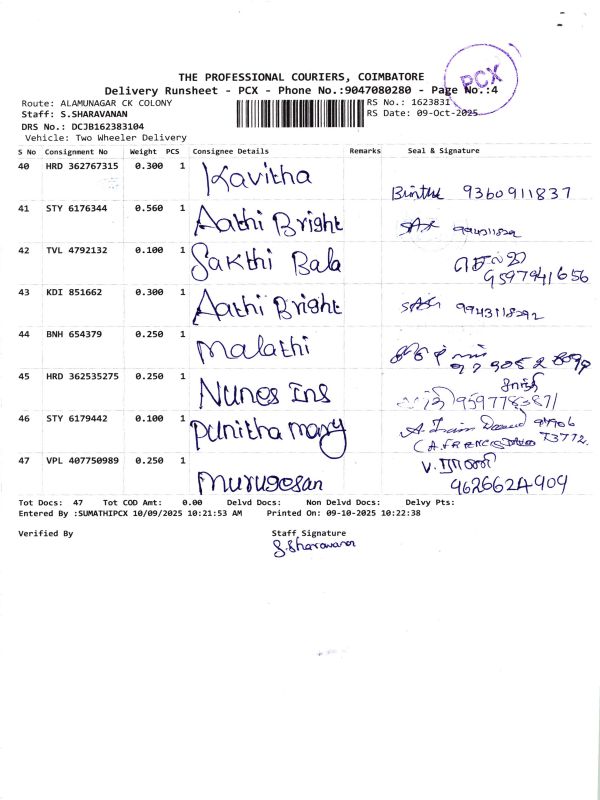 PCX
THE PROFESSIONAL COURIERS, COIMBATORE
Delivery Runsheet - PCX - Phone No.:9047080280 - Page No.:4
Route: ALAMUNAGAR CK COLONY RS No.: 1623831
Staff: S.SHARAVANAN RS Date: 09-Oct-2025
DRS No.: DCJB162383104
Vehicle: Two Wheeler Delivery
S No Consignment No Weight PCS Consignee Details Remarks Seal & Signature
40 HRD 362767315 0.300 1 Kavitha 9360911837
41 STY 6176344 0.560 1 Aathi Bright
42 TVL 4792132 0.100 1 Sakthi Bala 9597941656
43 KDI 851662 0.300 1 Aathi Bright
44 BNH 654379 0.250 1 Malathi
45 HRD 362535275 0.250 1 Nunes Ins
46 STY 6179442 0.100 1 Punitha mary
47 VPL 407750989 0.250 1 Murugesan 9626624909
Tot Docs: 47 Tot COD Amt: 0.00 Delvd Docs: Non Delvd Docs: Delvy Pts:
Entered By :SUMATHIPCX 10/09/2025 10:21:53 AM Printed On: 09-10-2025 10:22:38
Verified By Staff Signature
S.Sharavanan